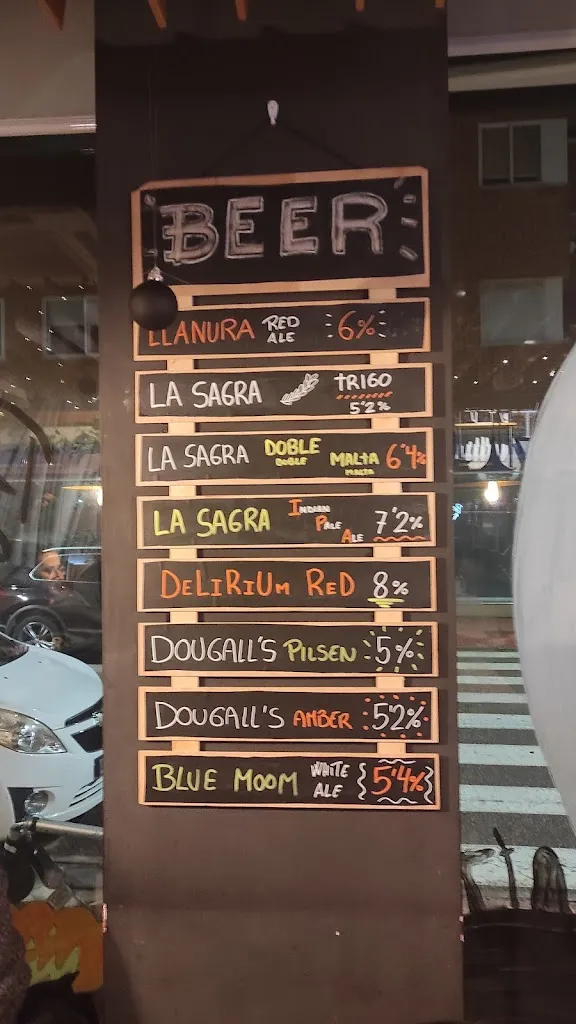 BEER
LLANURA RED ALE 6%
LA SAGRA TRIGO 5'2%
LA SAGRA DOBLE DOBLE MALTA MALTA 6'4%
LA SAGRA INDIAN PALE ALE 7'2%
DELIRIUM RED 8%
DOUGALL'S PILSEN 5%
DOUGALL'S AMBER 52%
BLUE MOOM WHITE ALE 5'4%